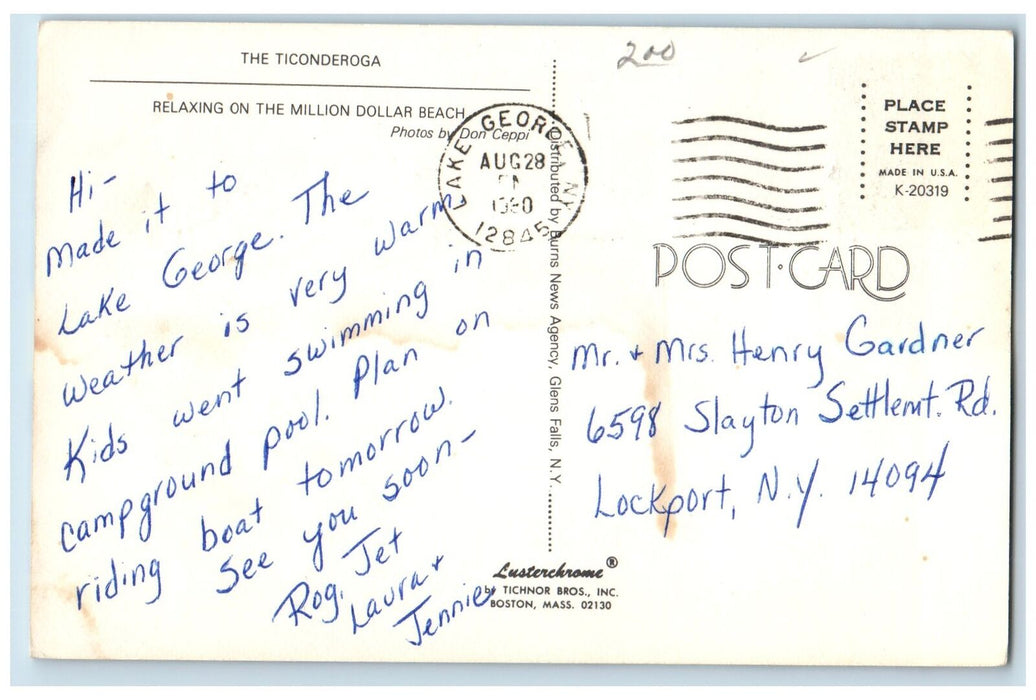 THE TICONDEROGA
RELAXING ON THE MILLION DOLLAR BEACH
Photos by Don Ceppi
Hi-
made it to
Lake George. The
weather is very warm
Kids went swimming in
campground pool. Plan on
riding boat tomorrow.
See you soon-
Rog. Jet
Laura +
Jennie
LAKE GEORGE NY
AUG 28
PM
12845
Distributed by Burns News Agency, Glens Falls, N.Y.
200
PLACE
STAMP
HERE
MADE IN U.S.A.
K-20319
POST·CARD
Mr. + Mrs. Henry Gardner
6598 Slayton Settlemt. Rd.
Lockport, N.Y. 14094
Lusterchrome®
by TICHNOR BROS., INC.
BOSTON, MASS. 02130